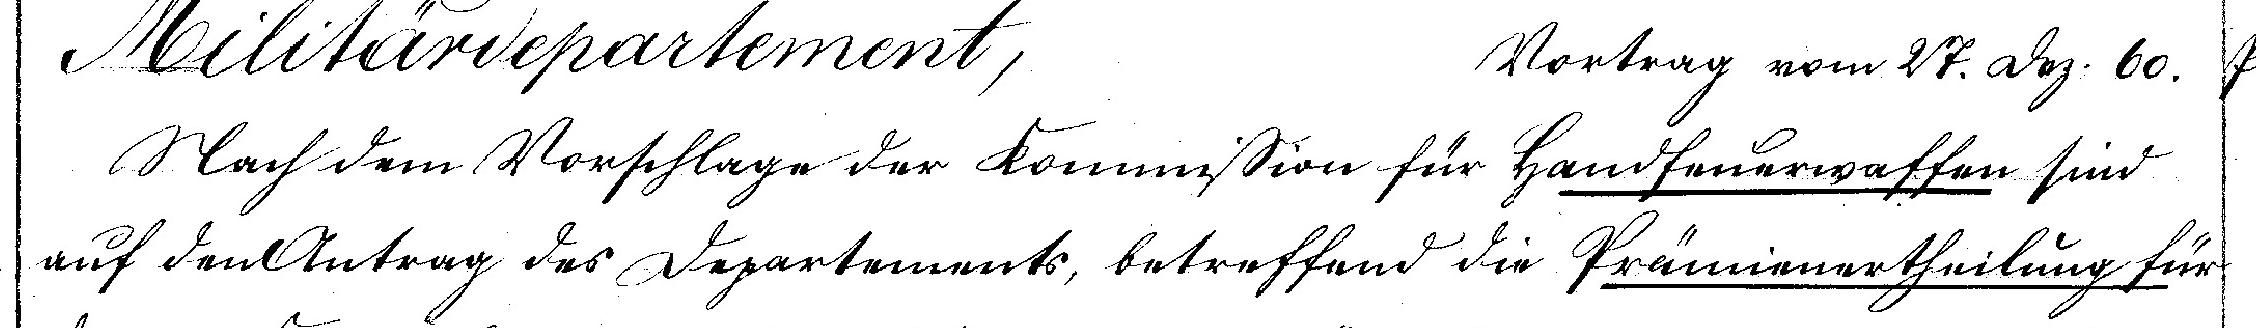 Militärdepartement, Vortrag vom 27. Dez. 60.
Nach dem Vorschlage der Kommission für Handfeuerwaffen sind
auf den Antrag des Departements, betreffend die Prämienertheilung für